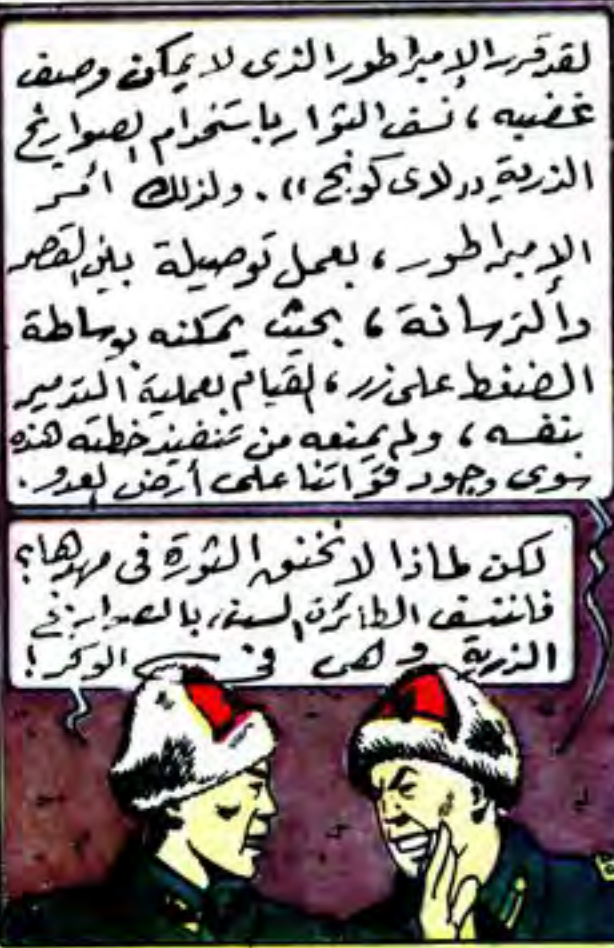 لقد قرر الإمبراطور الذى لا يمكن وصف
غضبه ، نسف الثوار باستخدام الصواريخ
الذرية «لاى كونج» . ولذلك أمر
الإمبراطور ، بعمل توصيلة بين القصر
والترسانة ، بحيث يمكنه بوساطة
الضغط على زر ، القيام بعملية التدمير
بنفسه ، ولم يمنعه من تنفيذ خطته هذه
سوى وجود قواتنا على أرض العدو .
لكن لماذا لا نخنق الثورة فى مهدها ؟
فلننسف الطائرة بالصواريخ
الذرية وهى فى الوكر !